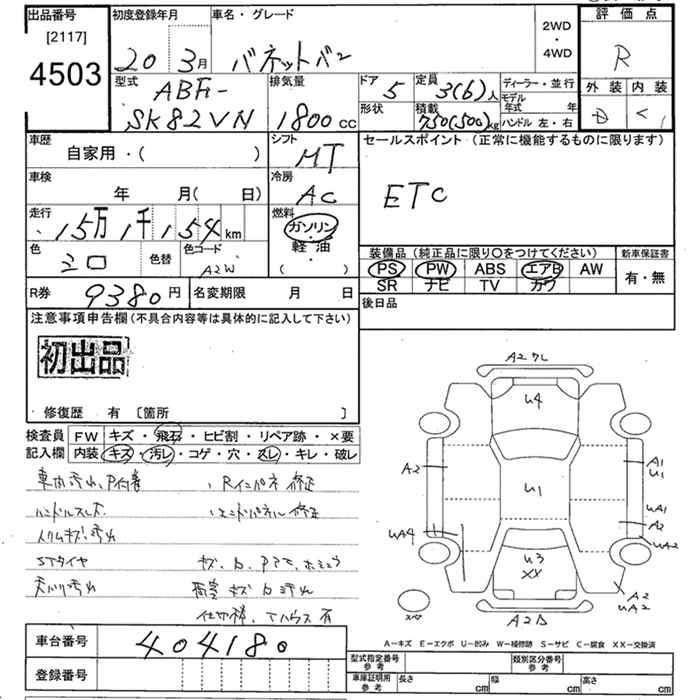 出品番号 初度登録年月 車名・グレード 2WD・4WD 評価点
[2117]
4503
20 3月 バネットバン R
型式 ABF- 排気量 ドア 5 定員 3(6)人 ディーラー・並行 外装 内装
SK82VN 1800cc 形状 積載 750(500)kg モデル年式 年 D
ハンドル 左・右
車歴 シフト MT セールスポイント (正常に機能するものに限ります)
自家用・( )
車検 冷房 AC ETC
年 月( 日)
走行 15万1千154km 燃料 ガソリン・軽油・( )
色 シロ 色替 色コード A2W
装備品 (純正品に限り〇をつけてください) 新車保証書
PS PW ABS エアB AW 有・無
SR ナビ TV カワ
R券 9380円 名変期限 月 日 後日品
注意事項申告欄(不具合内容等は具体的に記入して下さい)
初出品
修復歴 有 〔箇所 〕
検査員 FW キズ・飛石・ヒビ割・リペア跡・×要
記入欄 内装 キズ・汚レ・コゲ・穴・スレ・キレ・破レ
Rインパネ修正
ハンドルスレ エンドパネル修正
STタイヤ
A2 U4 A2 A1 U1 U1 UA1 UA4 A2 UA2 U3 XX A2 UA2
スペア
A-キズ E-エクボ U-凹み W-補修跡 S-サビ C-腐食 XX-交換済
車台番号 404180
登録番号
型式指定番号参考 類別区分番号参考
車庫証明用参考 長さ cm 幅 cm 高さ cm